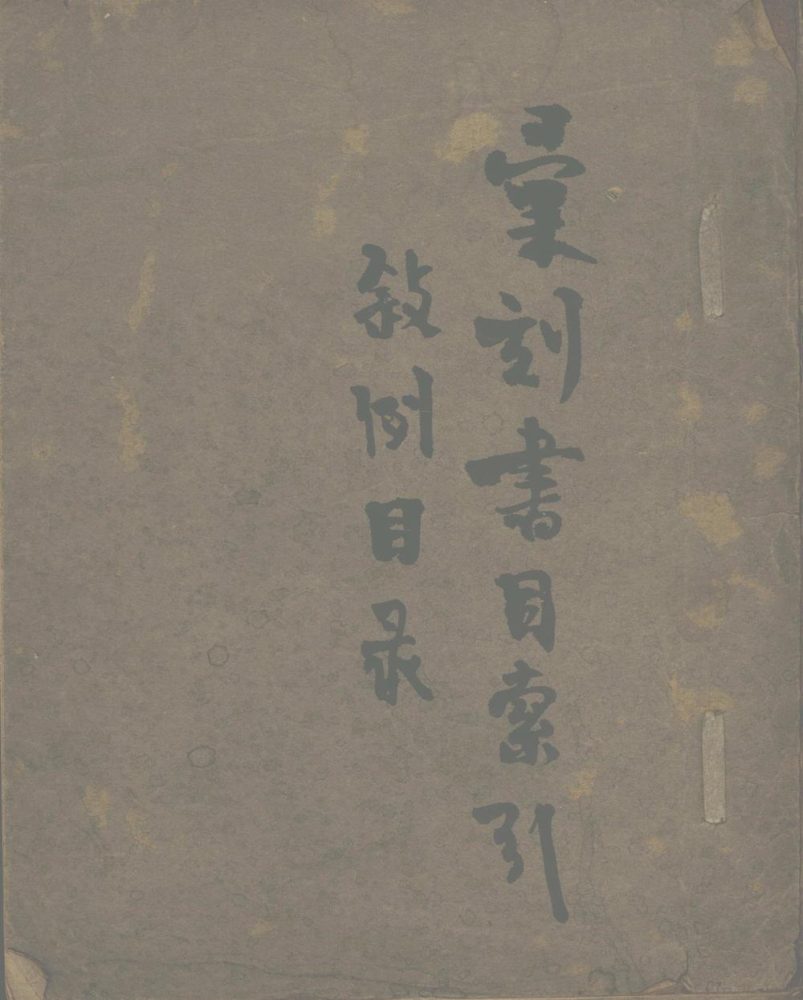 彙刻書目索引
敘例目录